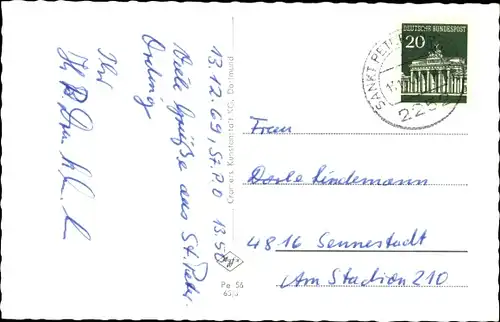 13.12.69, St. P.O 13.50
Viele Grüße aus St. Peter
Ording
Ihr
Cramers Kunstanstalt KG, Dortmund
Pe 56
DEUTSCHE BUNDESPOST
20
SANKT PETER
2252
Frau
Dorle Lindemann
4816 Sennestadt
Am Stadion 210